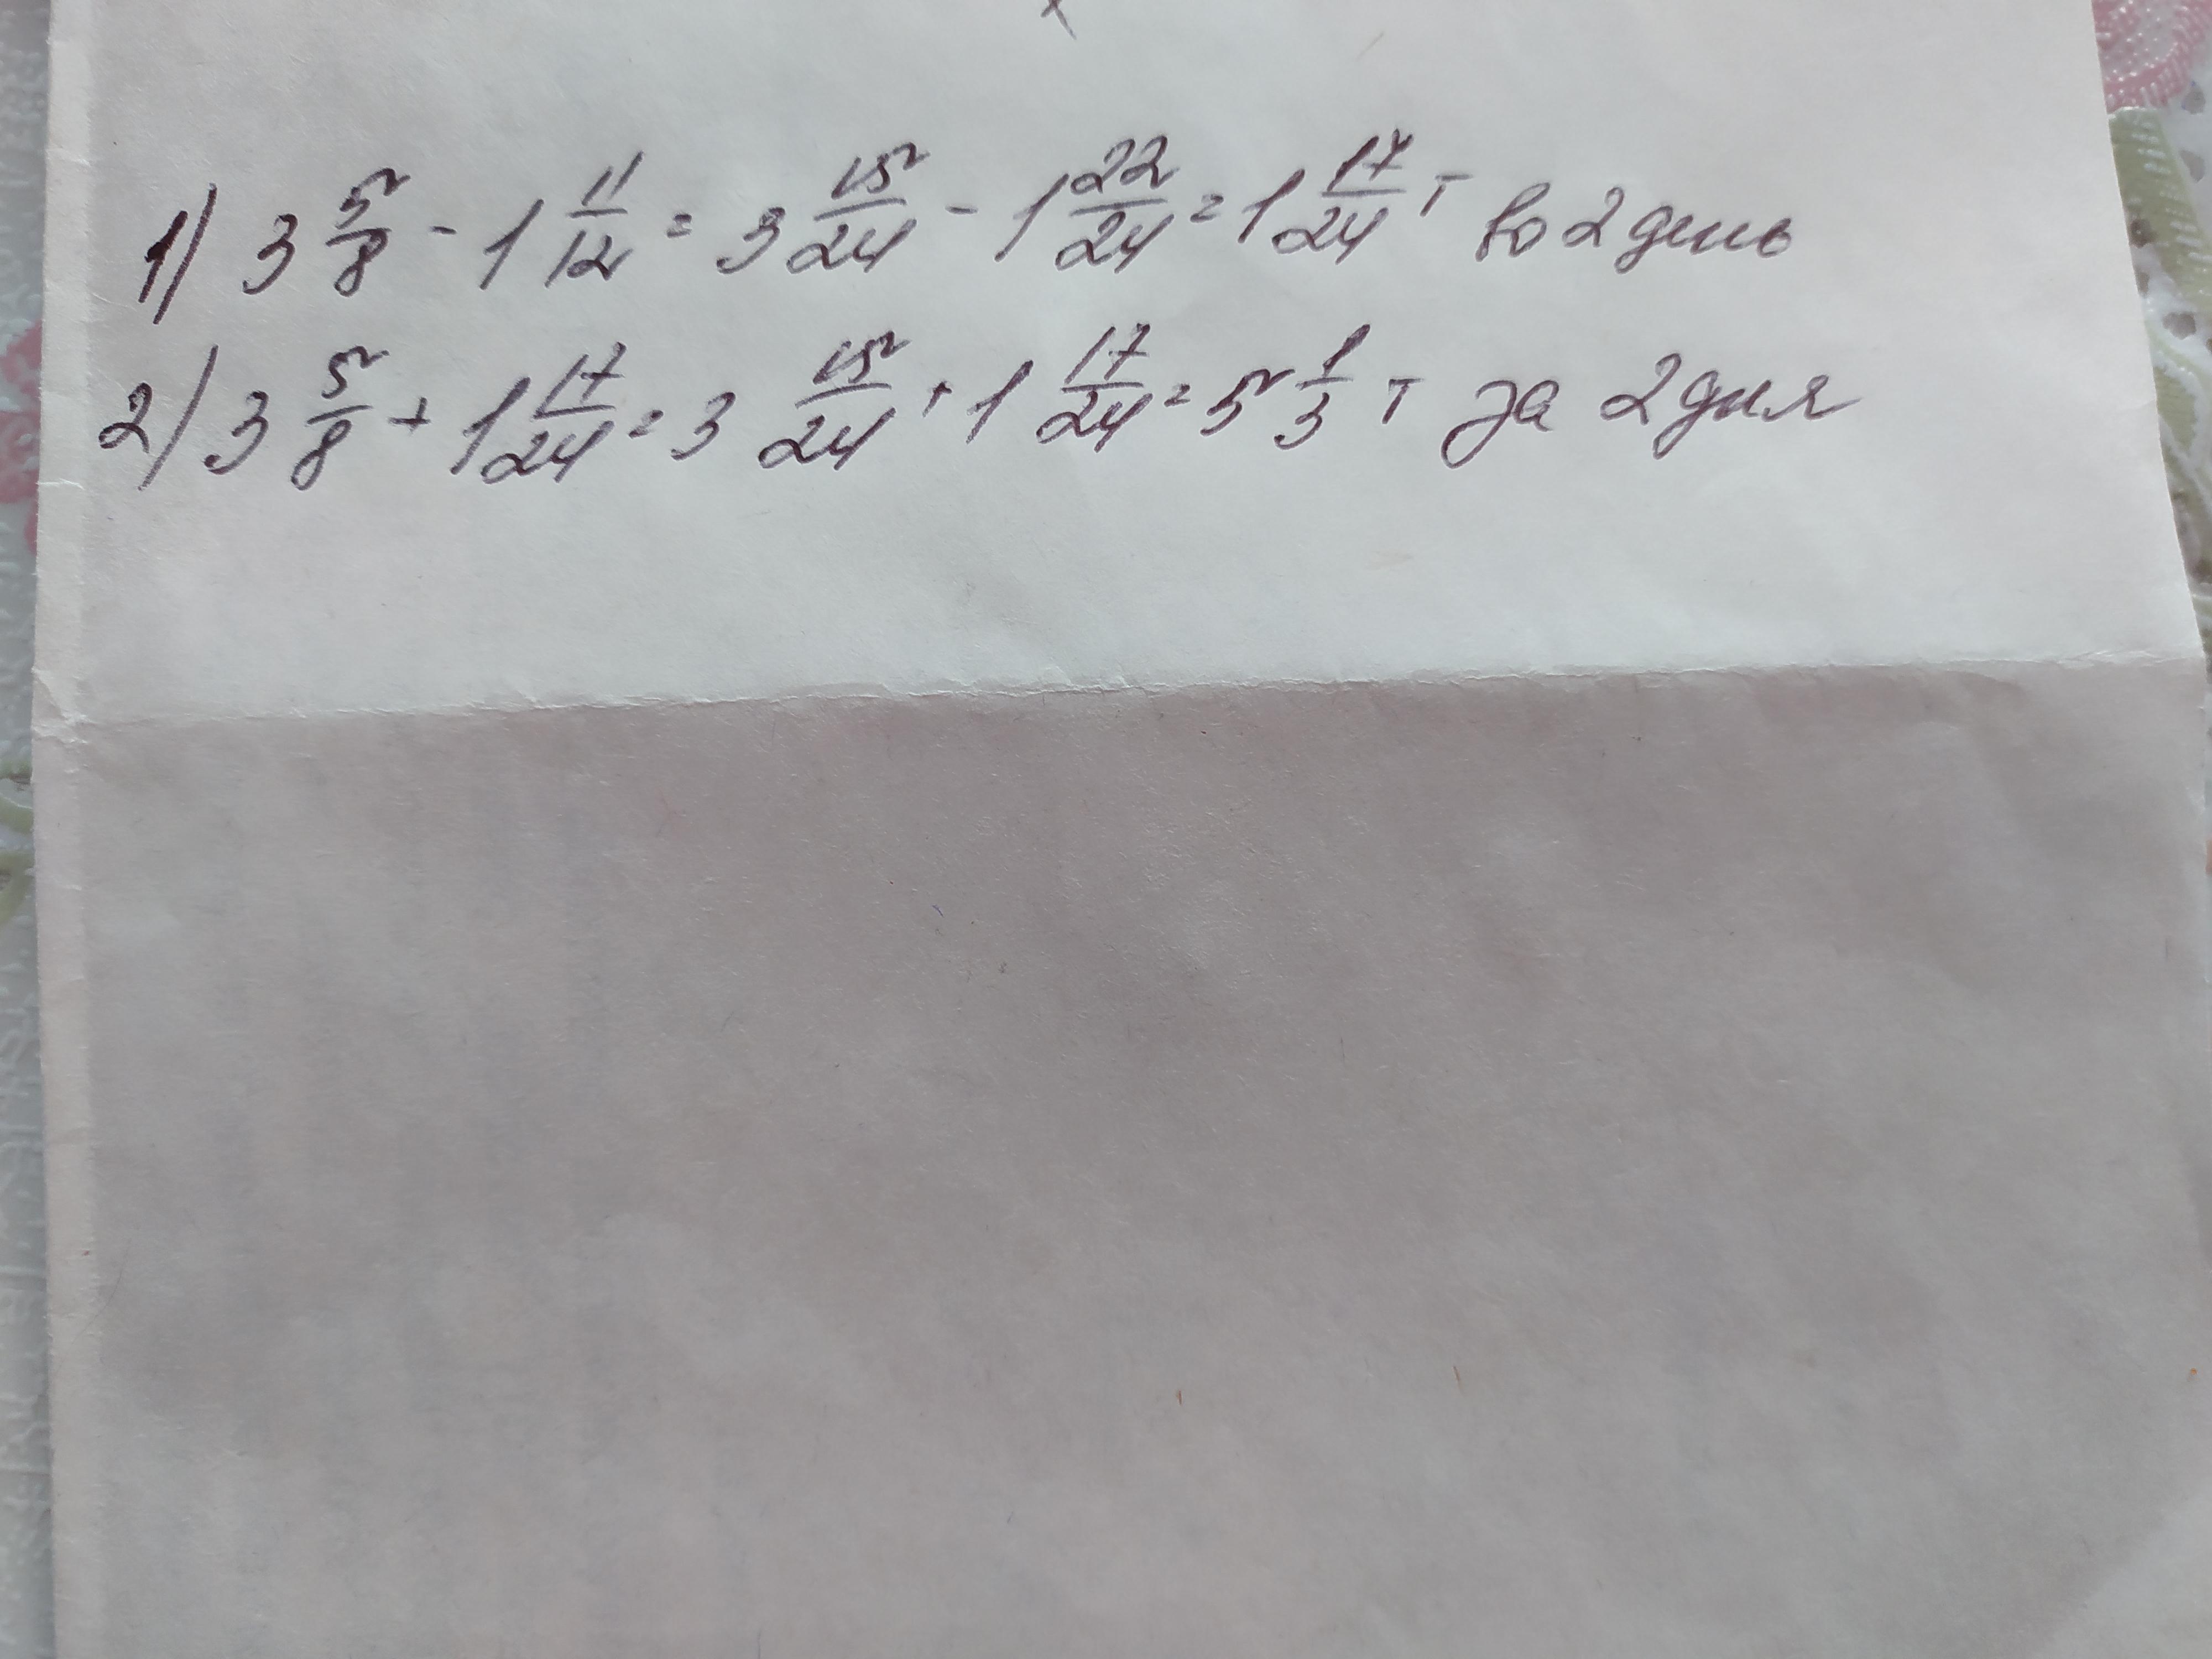 1) 3 5/8 - 1 11/12 = 3 15/24 - 1 22/24 = 1 17/24 т во 2 день
2) 3 5/8 + 1 17/24 = 3 15/24 + 1 17/24 = 5 1/3 т за 2 дня